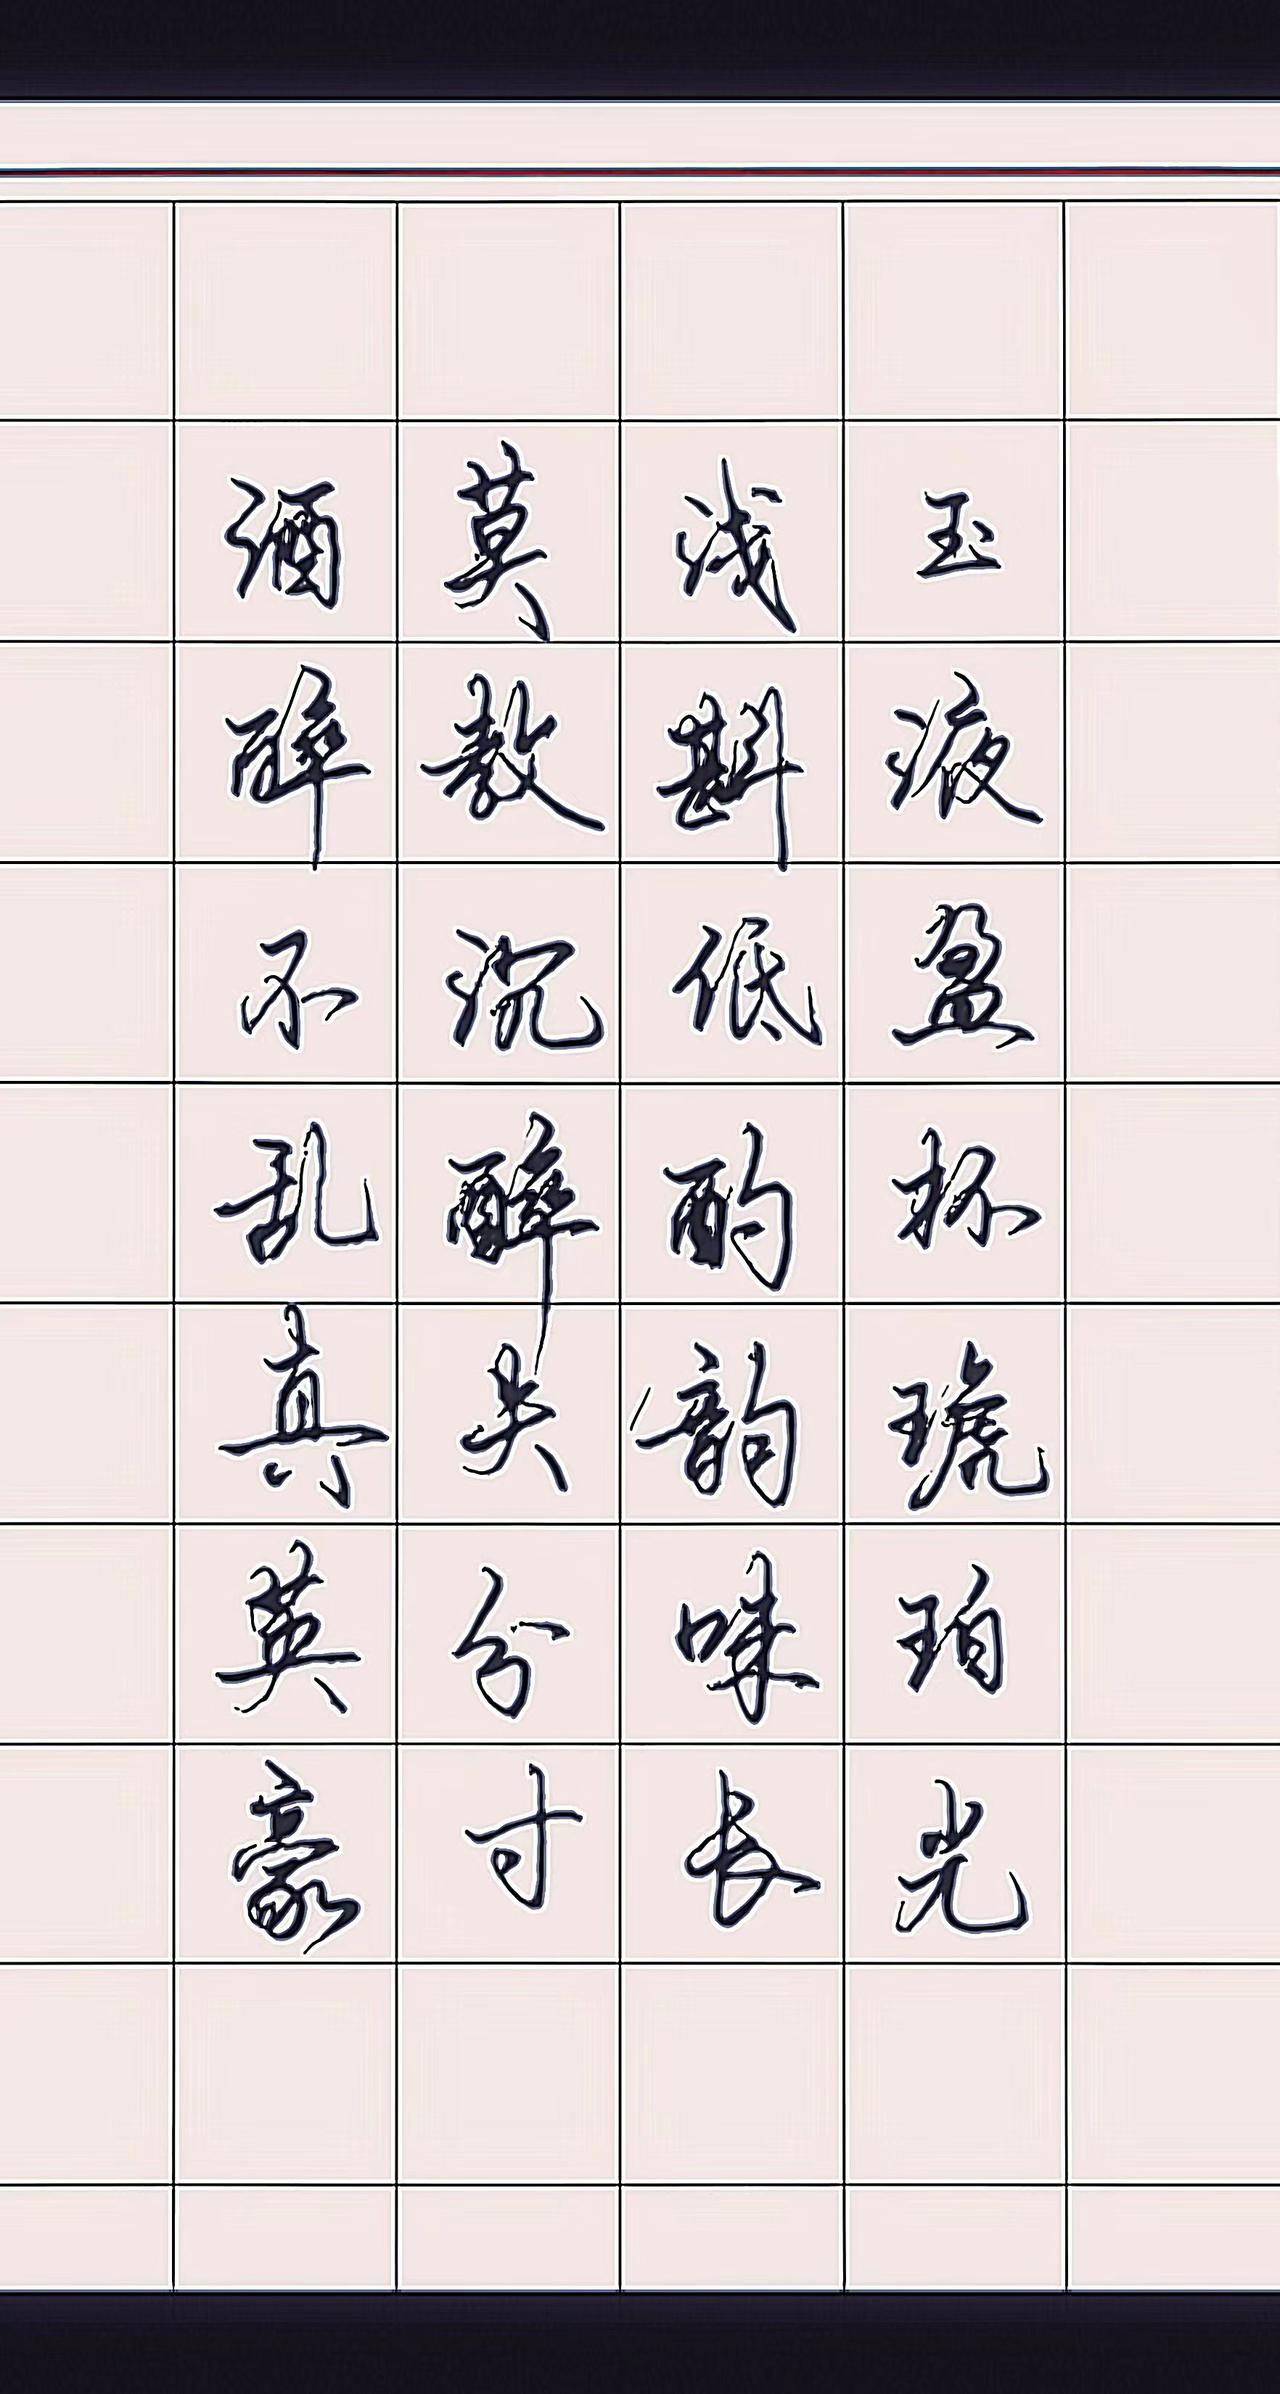 玉液盈杯琥珀光
浅斟低酌韵味长
莫教沉醉失分寸
酒醉不乱真英豪